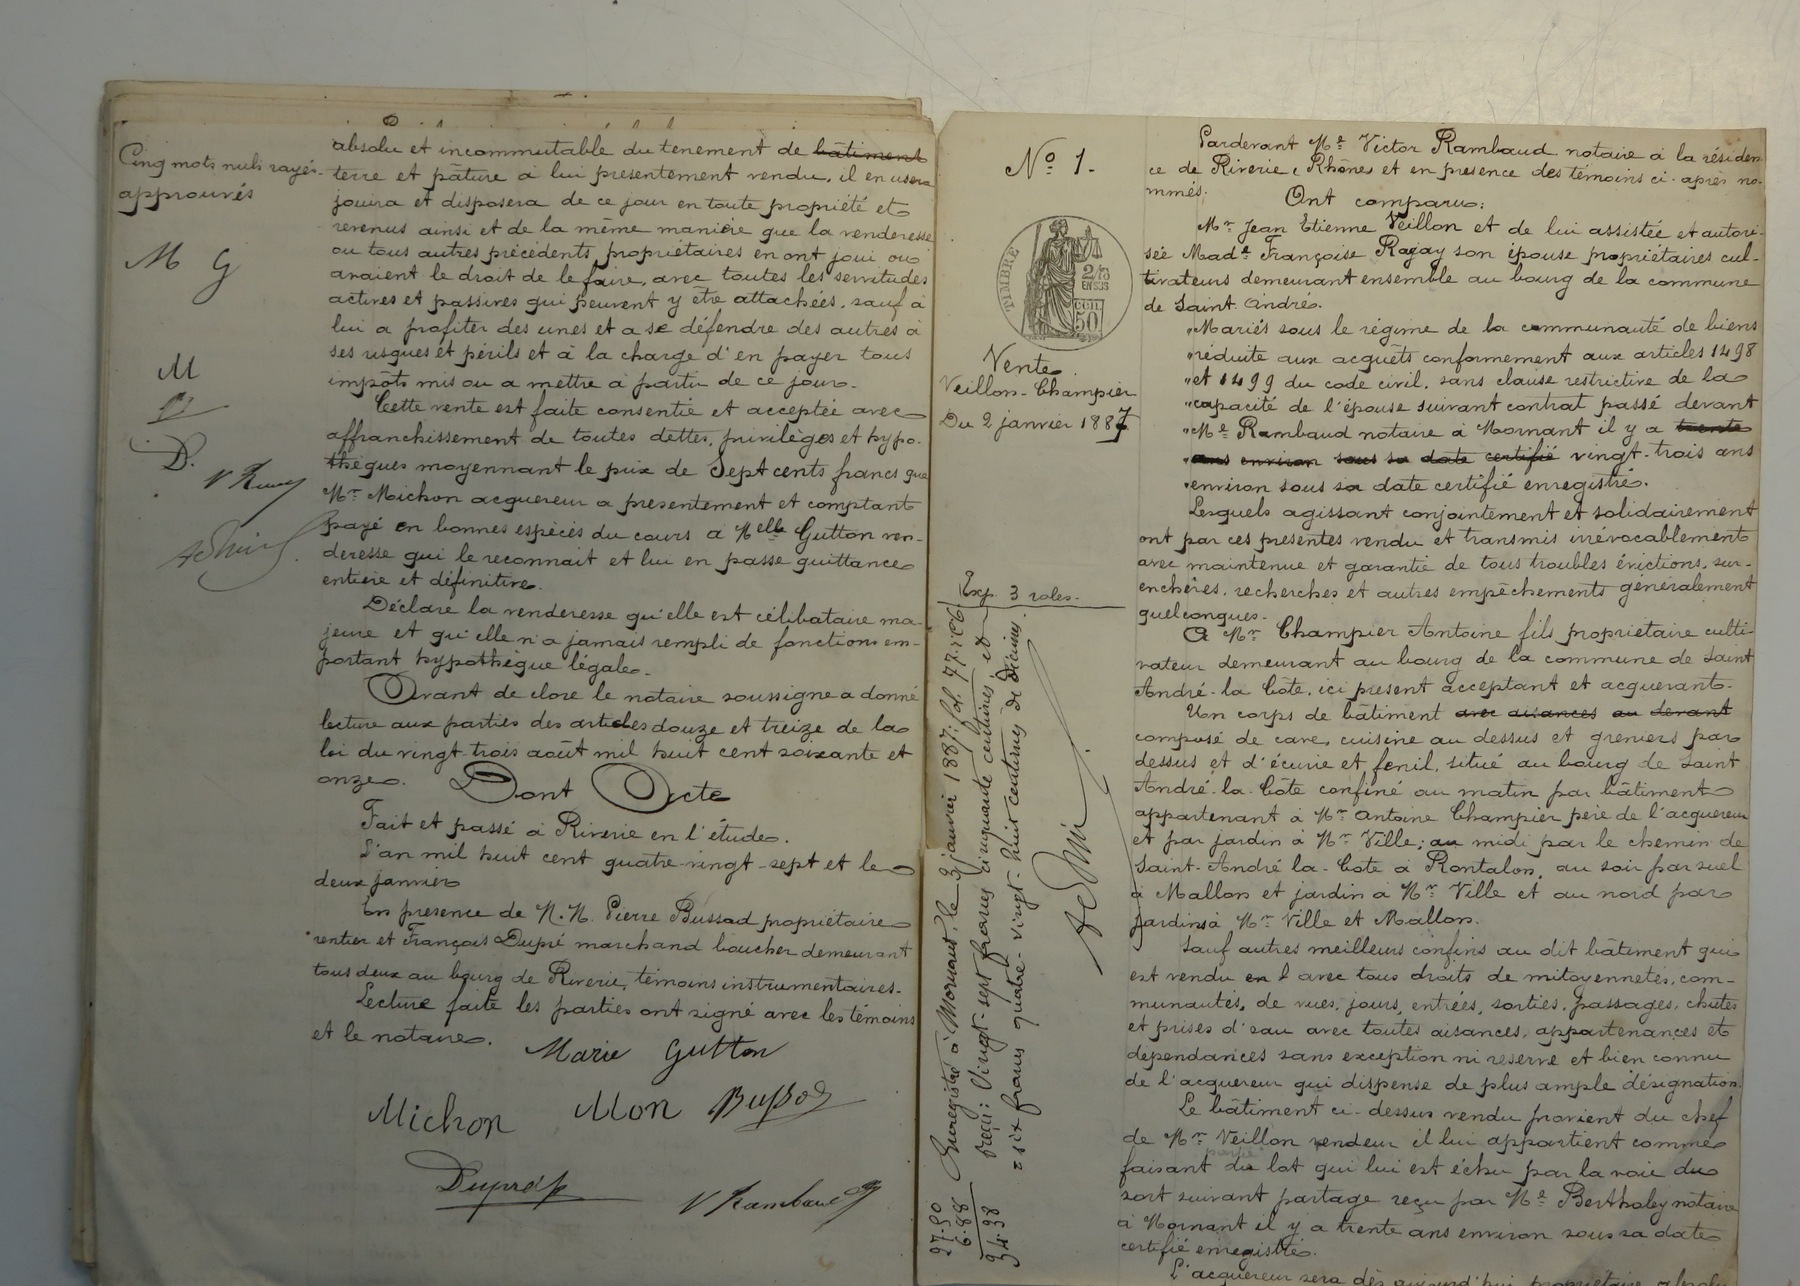 Cinq mots nuls rayés
approuvés
M G
M
D.
absolu et incommutable du tenement de bâtiment
terre et pâture a lui presentement vendu, il en usera
jouira et disposera de ce jour en toute propriété et
revenus ainsi et de la même manière que la venderesse
ou tous autres précédents propriétaires en ont joui ou
avaient le droit de le faire, avec toutes les servitudes
actives et passives qui peuvent y etre attachées, sauf à
lui a profiter des unes et a se défendre des autres à
ses risques et périls et à la charge d'en payer tous
impôts mis ou a mettre à partir de ce jour.
Cette vente est faite consentie et acceptée avec
affranchissement de toutes dettes, privilèges et hypo-
thèques moyennant le prix de Sept cents francs que
Mr Michon acquereur a presentement et comptant
payé en bonnes espèces du cours à Melle Gutton ven-
deresse qui le reconnait et lui en passe quittance
entière et définitive.
Déclare la venderesse qu'elle est célibataire ma-
jeure et qu'elle n'a jamais rempli de fonctions em-
portant hypothèque légale.
Avant de clore le notaire soussigné a donné
lecture aux parties des articles douze et treize de la
loi du vingt trois août mil huit cent soixante et
onze. Dont Acte
Fait et passé à Riverie en l'étude.
L'an mil huit cent quatre-vingt-sept et le
deux janvier
En presence de M.M. Pierre Bussod propriétaire
rentier et François Dupré marchand boucher demeurant
tous deux au bourg de Riverie, témoins instrumentaires.
Lecture faite les parties ont signé avec les témoins
et le notaire.
Marie Gutton
Michon Mon Bussod
V Rambaud
No 1.
TIMBRE
2/10
EN SUS
50
Vente
Veillon-Champier
Du 2 janvier 1887
Exp. 3 roles.
Enregistré à Mornant, le 3 janvier 1887, fol. 77.
reçu: Vingt-sept francs cinquante centimes, et
six francs quatre-vingt-huit centimes de décimes.
6.88
34.38
Pardevant Me Victor Rambaud notaire à la résiden
ce de Riverie (Rhône) et en presence des témoins ci-après no-
mmés.
Ont comparu:
Mr Jean Etienne Veillon et de lui assistée et autori-
sée Made Françoise Ragay son épouse propriétaires cul-
tivateurs demeurant ensemble au bourg de la commune
de Saint André.
"Mariés sous le régime de la communauté de biens
"réduite aux acquêts conformement aux articles 1498
"et 1499 du code civil, sans clause restrictive de la
"capacité de l'épouse suivant contrat passé devant
"Me Rambaud notaire à Mornant il y a trente
"ans environ sous sa date certifié vingt-trois ans
"environ sous sa date certifié enregistré.
Lesquels agissant conjointement et solidairement
ont par ces présentes vendu et transmis irrévocablement
avec maintenue et garantie de tous troubles évictions, sur-
enchères, recherches et autres empêchements généralement
quelconques.
A Mr Champier Antoine fils propriétaire culti-
vateur demeurant au bourg de la commune de Saint
André-la Côte, ici présent acceptant et acquerant.
Un corps de bâtiment avec aisances au devant
composé de cave, cuisine au dessus et greniers par
dessus et d'écurie et fenil, situé au bourg de Saint
André-la-Côte confiné au matin par bâtiment
appartenant à Mr Antoine Champier père de l'acquereur
et par jardin à Mr Ville; au midi par le chemin de
Saint-André la-Côte à Rontalon, au soir par suel
à Mallon et jardin à Mr Ville et au nord par
jardins à Mr Ville et Mallon.
Sauf autres meilleurs confins au dit bâtiment qui
est vendu en l avec tous droits de mitoyennetés, com-
munautés, de vues, jours, entrées, sorties, passages, chûtes
et prises d'eau avec toutes aisances, appartenances et
dépendances sans exception ni reserve et bien connu
de l'acquereur qui dispense de plus ample désignation.
Le bâtiment ci-dessus vendu provient du chef
de Mr Veillon vendeur il lui appartient comme
faisant du lot qui lui est échu par la voie du
sort suivant partage reçu par Me Bertholey notaire
à Mornant il y a trente ans environ sous sa date
certifié enregistré.
L'acquereur sera dès aujourd'hui propriétaire